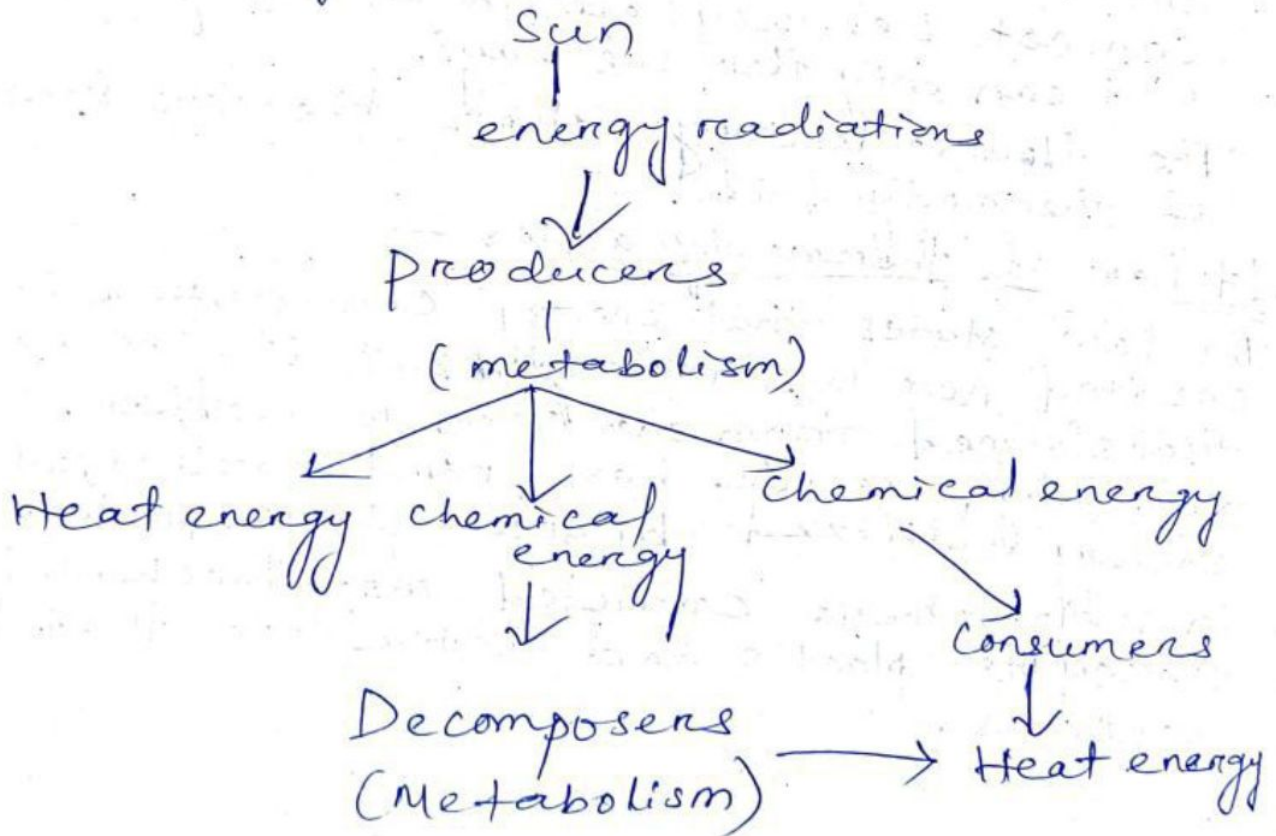 Sun
energy radiations
Producers
(metabolism)
Heat energy chemical energy Chemical energy
Consumers
Decomposers
(Metabolism)
Heat energy